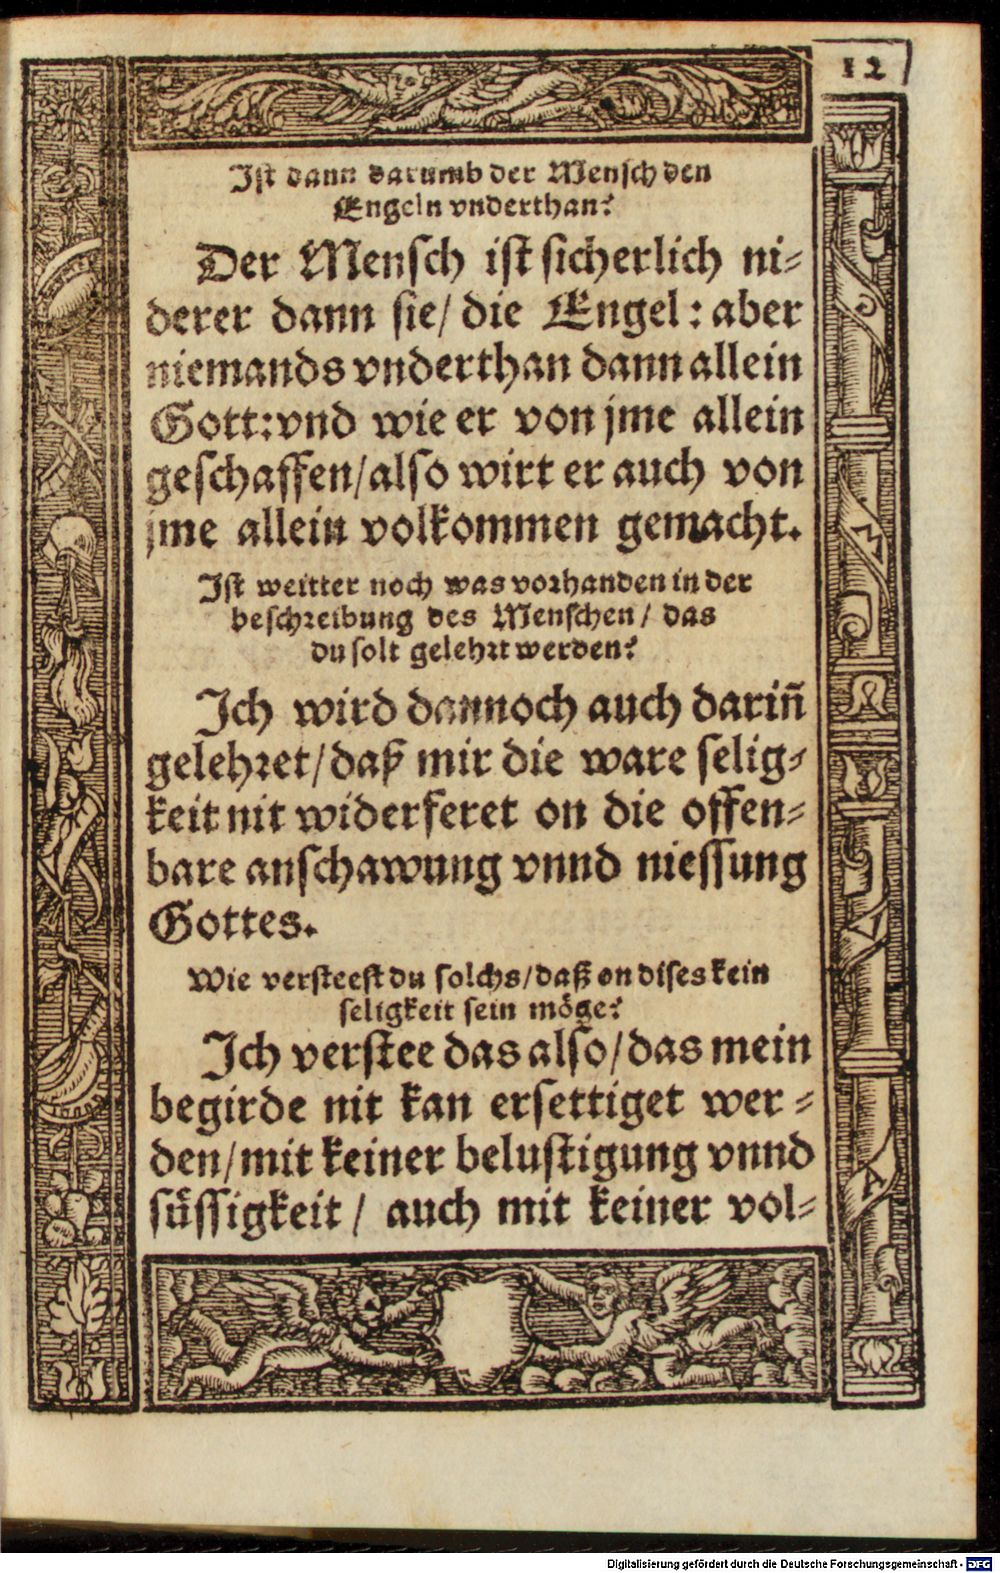 12
Ist dann darumb der Mensch den
Engeln vnderthan?
Der Mensch ist sicherlich ni⸗
derer dann sie/ die Engel: aber
niemands vnderthan dann allein
Gott: vnd wie er von jme allein
geschaffen/ also wirt er auch von
jme allein volkommen gemacht.
Ist weitter noch was vorhanden in der
beschreibung des Menschen/ das
du solt gelehrt werden?
Ich wird dannoch auch dariñ
gelehret/ daß mir die ware selig⸗
keit nit widerferet on die offen⸗
bare anschawung vnnd niessung
Gottes.
Wie versteest du solchs/ daß on dises kein
seligkeit sein möge?
Ich verstee das also/ das mein
begirde nit kan ersettiget wer⸗
den/ mit keiner belustigung vnnd
süssigkeit/ auch mit keiner vol⸗
Digitalisierung gefördert durch die Deutsche Forschungsgemeinschaft - DFG